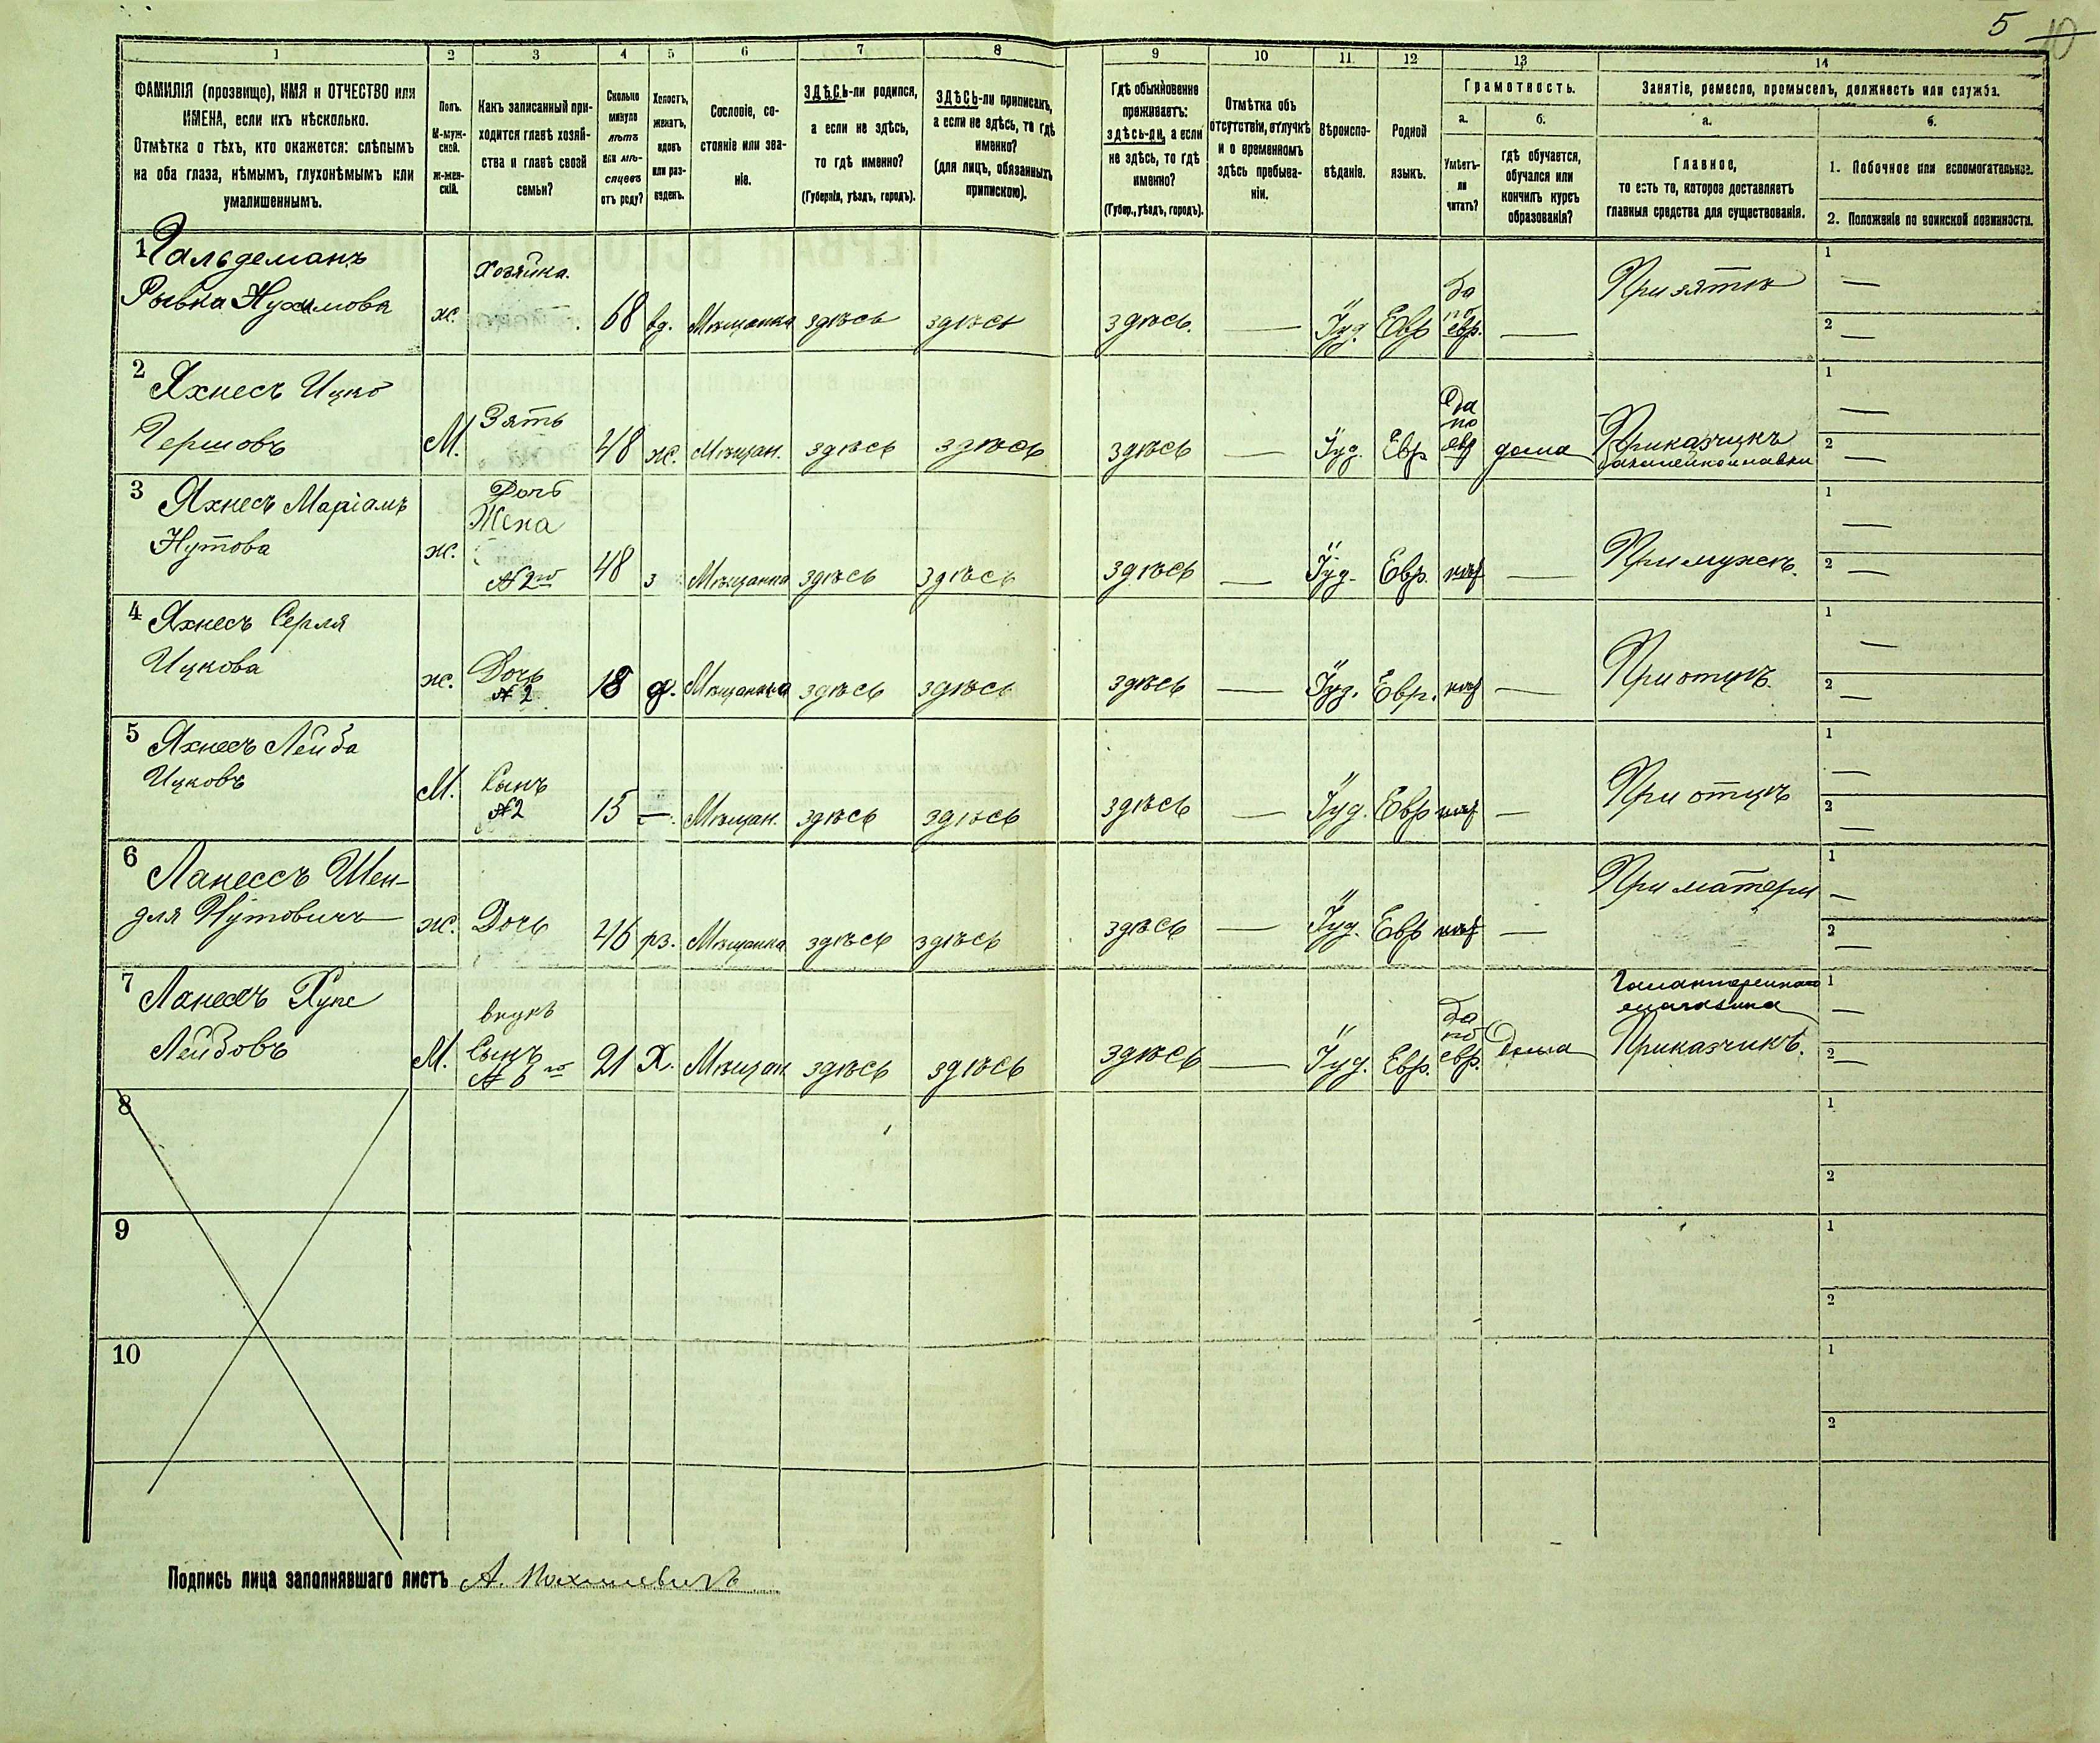 5 10
1 2 3 4 5 6 7 8 9 10 11 12 13 14
ФАМИЛІЯ (прозвище), ИМЯ и ОТЧЕСТВО или
ИМЕНА, если ихъ нѣсколько.
Отмѣтка о тѣхъ, кто окажется: слѣпымъ
на оба глаза, нѣмымъ, глухонѣмымъ или
умалишеннымъ.
Полъ.
М-муж-
ской.
ж-жен-
скій.
Какъ записанный при-
ходится главѣ хозяй-
ства и главѣ своей
семьи?
Сколько
минуло
лѣтъ
или мѣ-
сяцевъ
отъ роду?
Холостъ,
женатъ,
вдовъ
или раз-
веденъ.
Сословіе, со-
стояніе или зва-
ніе.
ЗДѢСЬ-ли родился,
а если не здѣсь,
то гдѣ именно?
(Губернія, уѣздъ, городъ).
ЗДѢСЬ-ли приписанъ,
а если не здѣсь, то гдѣ
именно?
(для лицъ, обязанныхъ
припискою).
Гдѣ обыкновенно
проживаетъ:
здѣсь-ли, а если
не здѣсь, то гдѣ
именно?
(Губер., уѣздъ, городъ).
Отмѣтка объ
отсутствіи, отлучкѣ
и о временномъ
здѣсь пребыва-
ніи.
Вѣроиспо-
вѣданіе.
Родной
языкъ.
Грамотность.
а.
Умѣетъ-
ли
читать?
б.
гдѣ обучается,
обучался или
кончилъ курсъ
образованія?
Занятіе, ремесло, промыселъ, должность или служба.
а.
Главное,
то есть то, которое доставляетъ
главныя средства для существованія.
б.
1. Побочное или вспомогательное.
2. Положеніе по воинской повинности.
1 Гальдеманъ
Рывка Нухимова
ж.
Хозяйка.
68 вд. Мѣщанка здѣсь здѣсь здѣсь. — Іуд. Евр
да
по
евр. —
При зятѣ
1 —
2 —
2 Яхнесъ Ицко
Гершовъ
М.
Зять
48 ж. Мѣщан. здѣсь здѣсь здѣсь — Іуд. Евр
Да
по
евр дома
Приказчикъ
бакалейной лавки
1 —
2 —
3 Яхнесъ Маріамъ
Нутова
ж.
Дочь
Жена
№ 2го
48 з Мѣщанка здѣсь здѣсь здѣсь — Іуд. Евр. нѣт —
При мужѣ.
1 —
2 —
4 Яхнесъ Серля
Ицкова
ж. Дочь
№ 2
18 д. Мѣщанка здѣсь здѣсь здѣсь — Іуд. Евр. нѣт —
При отцѣ.
1 —
2 —
5 Яхнесъ Лейба
Ицковъ
М. Сынъ
№ 2
15 — Мѣщан. здѣсь здѣсь здѣсь — Іуд. Евр нѣт —
При отцѣ
1 —
2 —
6 Ланессъ Шен-
для Нутовичъ
ж. Дочь 46 рз. Мѣщанка здѣсь здѣсь здѣсь — Іуд. Евр нѣт —
При матери
1 —
2 —
7 Ланессъ
Лейбовъ
М.
внукъ
Сынъ
№ 6го
21 Х. Мѣщан здѣсь здѣсь здѣсь — Іуд. Евр.
Да
по
евр. Дома
Галантерейнаго
магазина
Приказчикъ.
1 —
2 —
8
1
2
9
1
2
10
1
2
Подпись лица заполнявшаго листъ А.